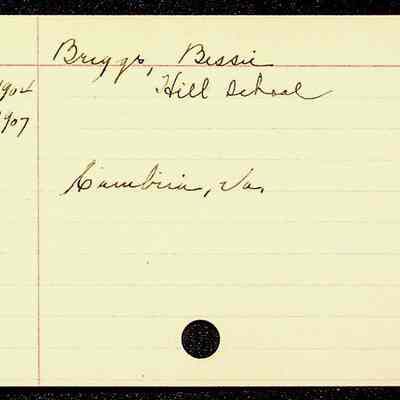 Briggs, Bessie
1904 Hill School
1907
Cambria, Va.